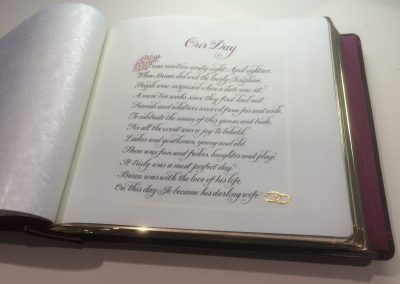 Our Day
It was nineteen ninety eight, April eighteen,
When Brian did wed the lovely Josephine.
People were surprised when a date was set,
A mere ten weeks since they first had met.
Friends and relatives arrived from far and wide,
To celebrate the union of this groom and bride.
For all the event was a joy to behold,
Ladies and gentlemen, young and old.
There was fun and frolics, laughter and play,
It truly was a most perfect day.
Brian was with the love of his life,
On this day Jo became his darling wife.